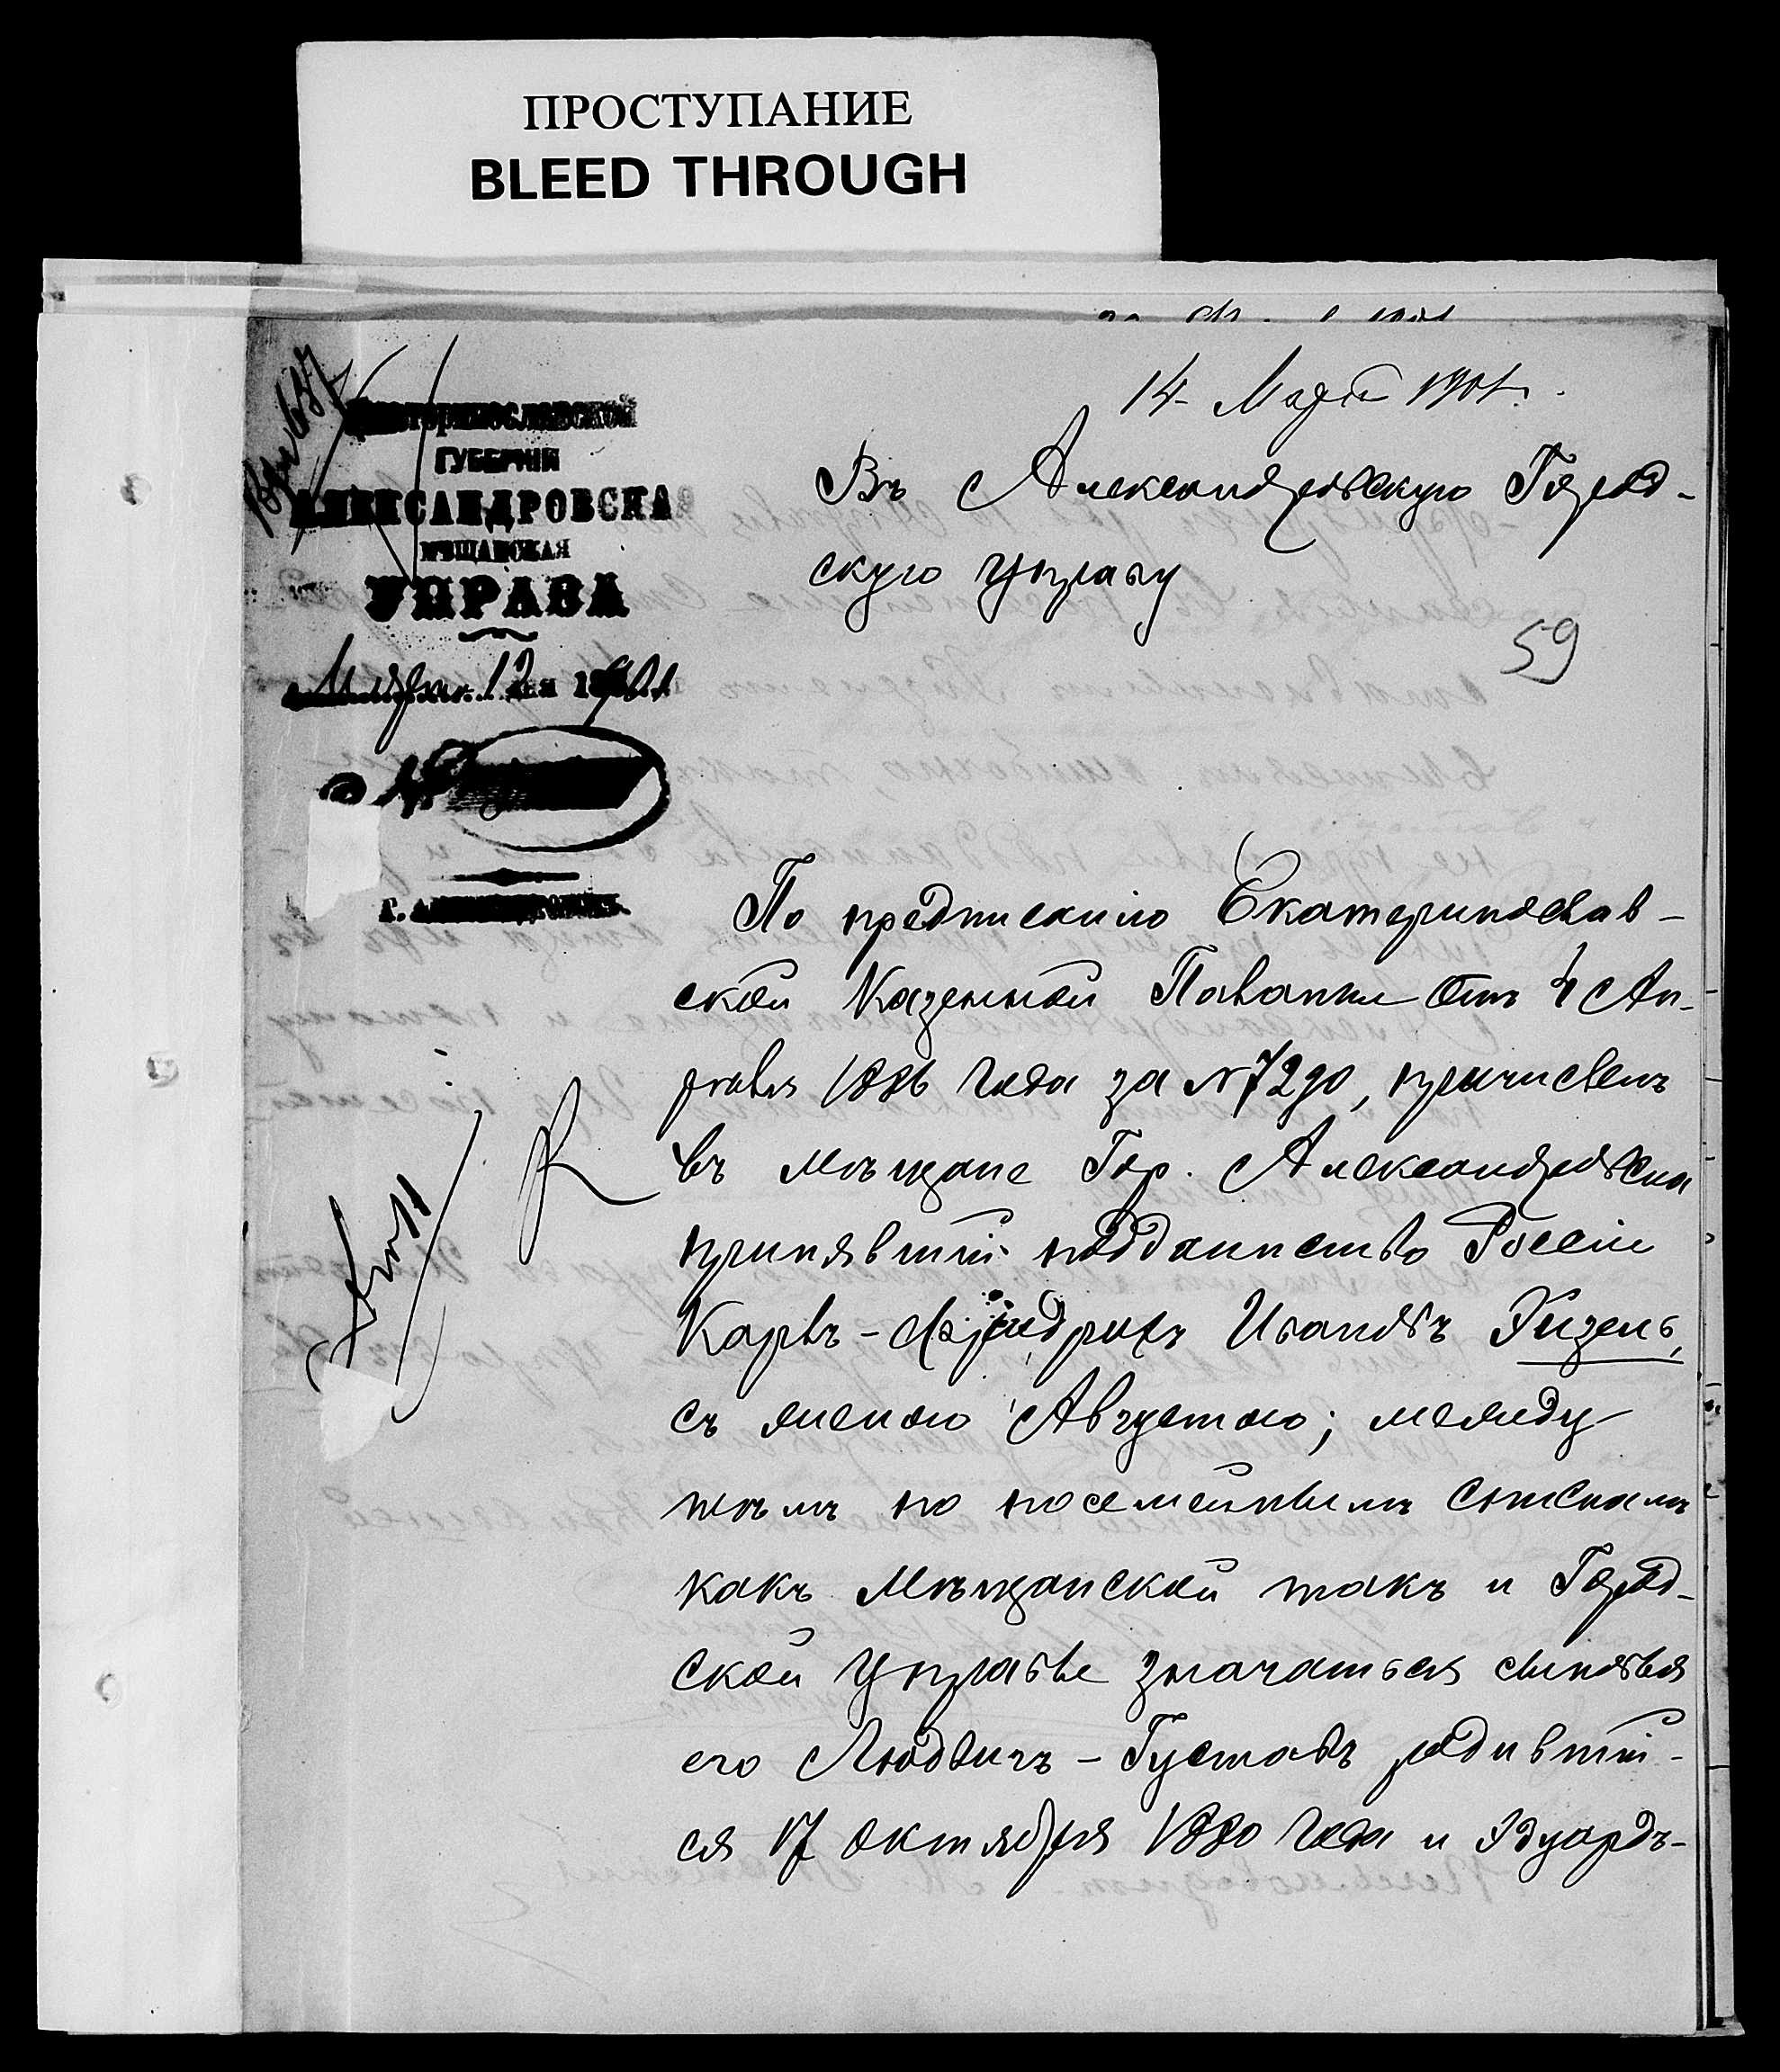 ПРОСТУПАНИЕ
BLEED THROUGH
14 Марта 1901 г.
Екатеринославской
ГУБЕРНІИ
АЛЕКСАНДРОВСКАЯ
МѢЩАНСКАЯ
УПРАВА
Марта 12 дня 1901
г. Александровскъ.
Въ Александровскую Город-
скую Управу
59
По предписанію Екатеринослав-
ской Казенной Палаты отъ 4 Ап-
рѣля 1886 года за № 7290, причисленъ
въ мѣщане Гор. Александровска
принявшій подданство Россіи
Карлъ-Фридрихъ Ивановъ Гизель,
съ женою Августою; между
тѣмъ по посемейнымъ спискамъ
какъ Мѣщанской такъ и Город-
ской Управѣ значатся сыновья
его Людвигъ-Густавъ родившій-
ся 17 октября 1880 года и Эдуардъ-